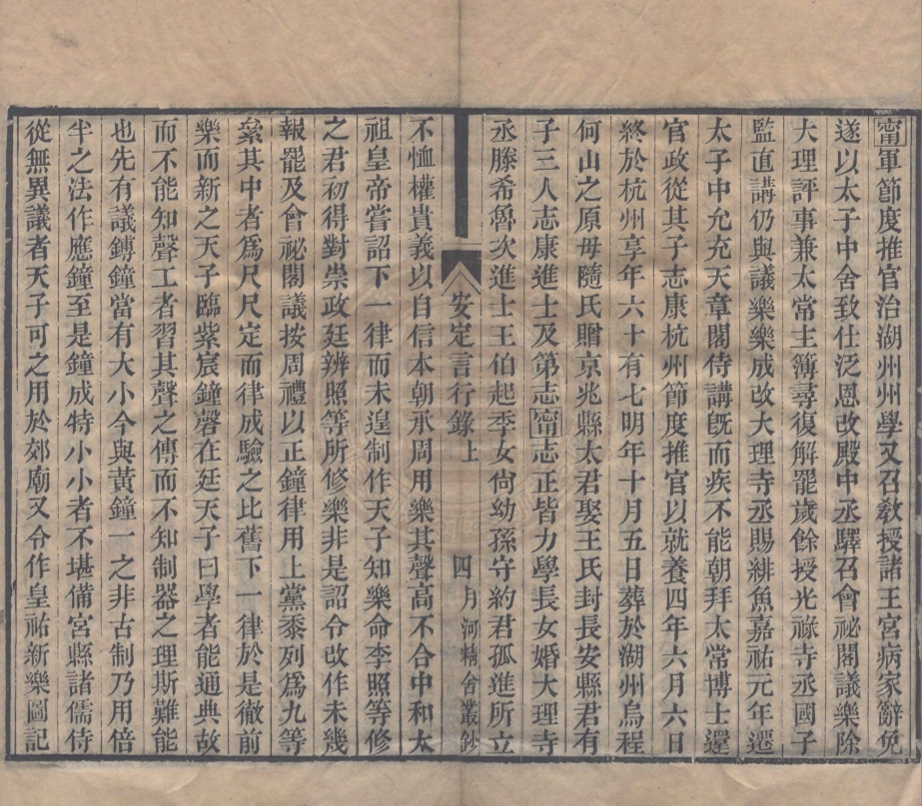 甯軍節度推官治湖州州學又召教授諸王宮病家辭免
遂以太子中舍致仕泛恩改殿中丞驛召會祕閣議樂除
大理評事兼太常主簿尋復解罷歲餘授光祿寺丞國子
監直講仍與議樂樂成改大理寺丞賜緋魚嘉祐元年遷
太子中允充天章閣侍講旣而疾不能朝拜太常博士還
官政從其子志康杭州節度推官以就養四年六月六日
終於杭州享年六十有七明年十月五日葬於湖州烏程
何山之原毋隨氏贈京兆縣太君娶王氏封長安縣君有
子三人志康進士及第志甯志正皆力學長女婚大理寺
丞滕希魯次進士王伯起季女尙幼孫守約君孤進所立
安定言行錄上 四 月河精舍叢鈔
不恤權貴義以自信本朝承周用樂其聲高不合中和太
祖皇帝嘗詔下一律而未遑制作天子知樂命李照等修
之君初得對崇政廷辨照等所修樂非是詔令改作未幾
報罷及會祕閣議按周禮以正鐘律用上黨黍列爲九等
絫其中者爲尺尺定而律成驗之比舊下一律於是徹前
樂而新之天子臨紫宸鐘磬在廷天子曰學者能通典故
而不能知聲工者習其聲之傳而不知制器之理斯難能
也先有議鎛鐘當有大小今與黃鐘一之非古制乃用倍
半之法作應鐘至是鐘成特小小者不堪備宮縣諸儒侍
從無異議者天子可之用於郊廟又令作皇祐新樂圖記